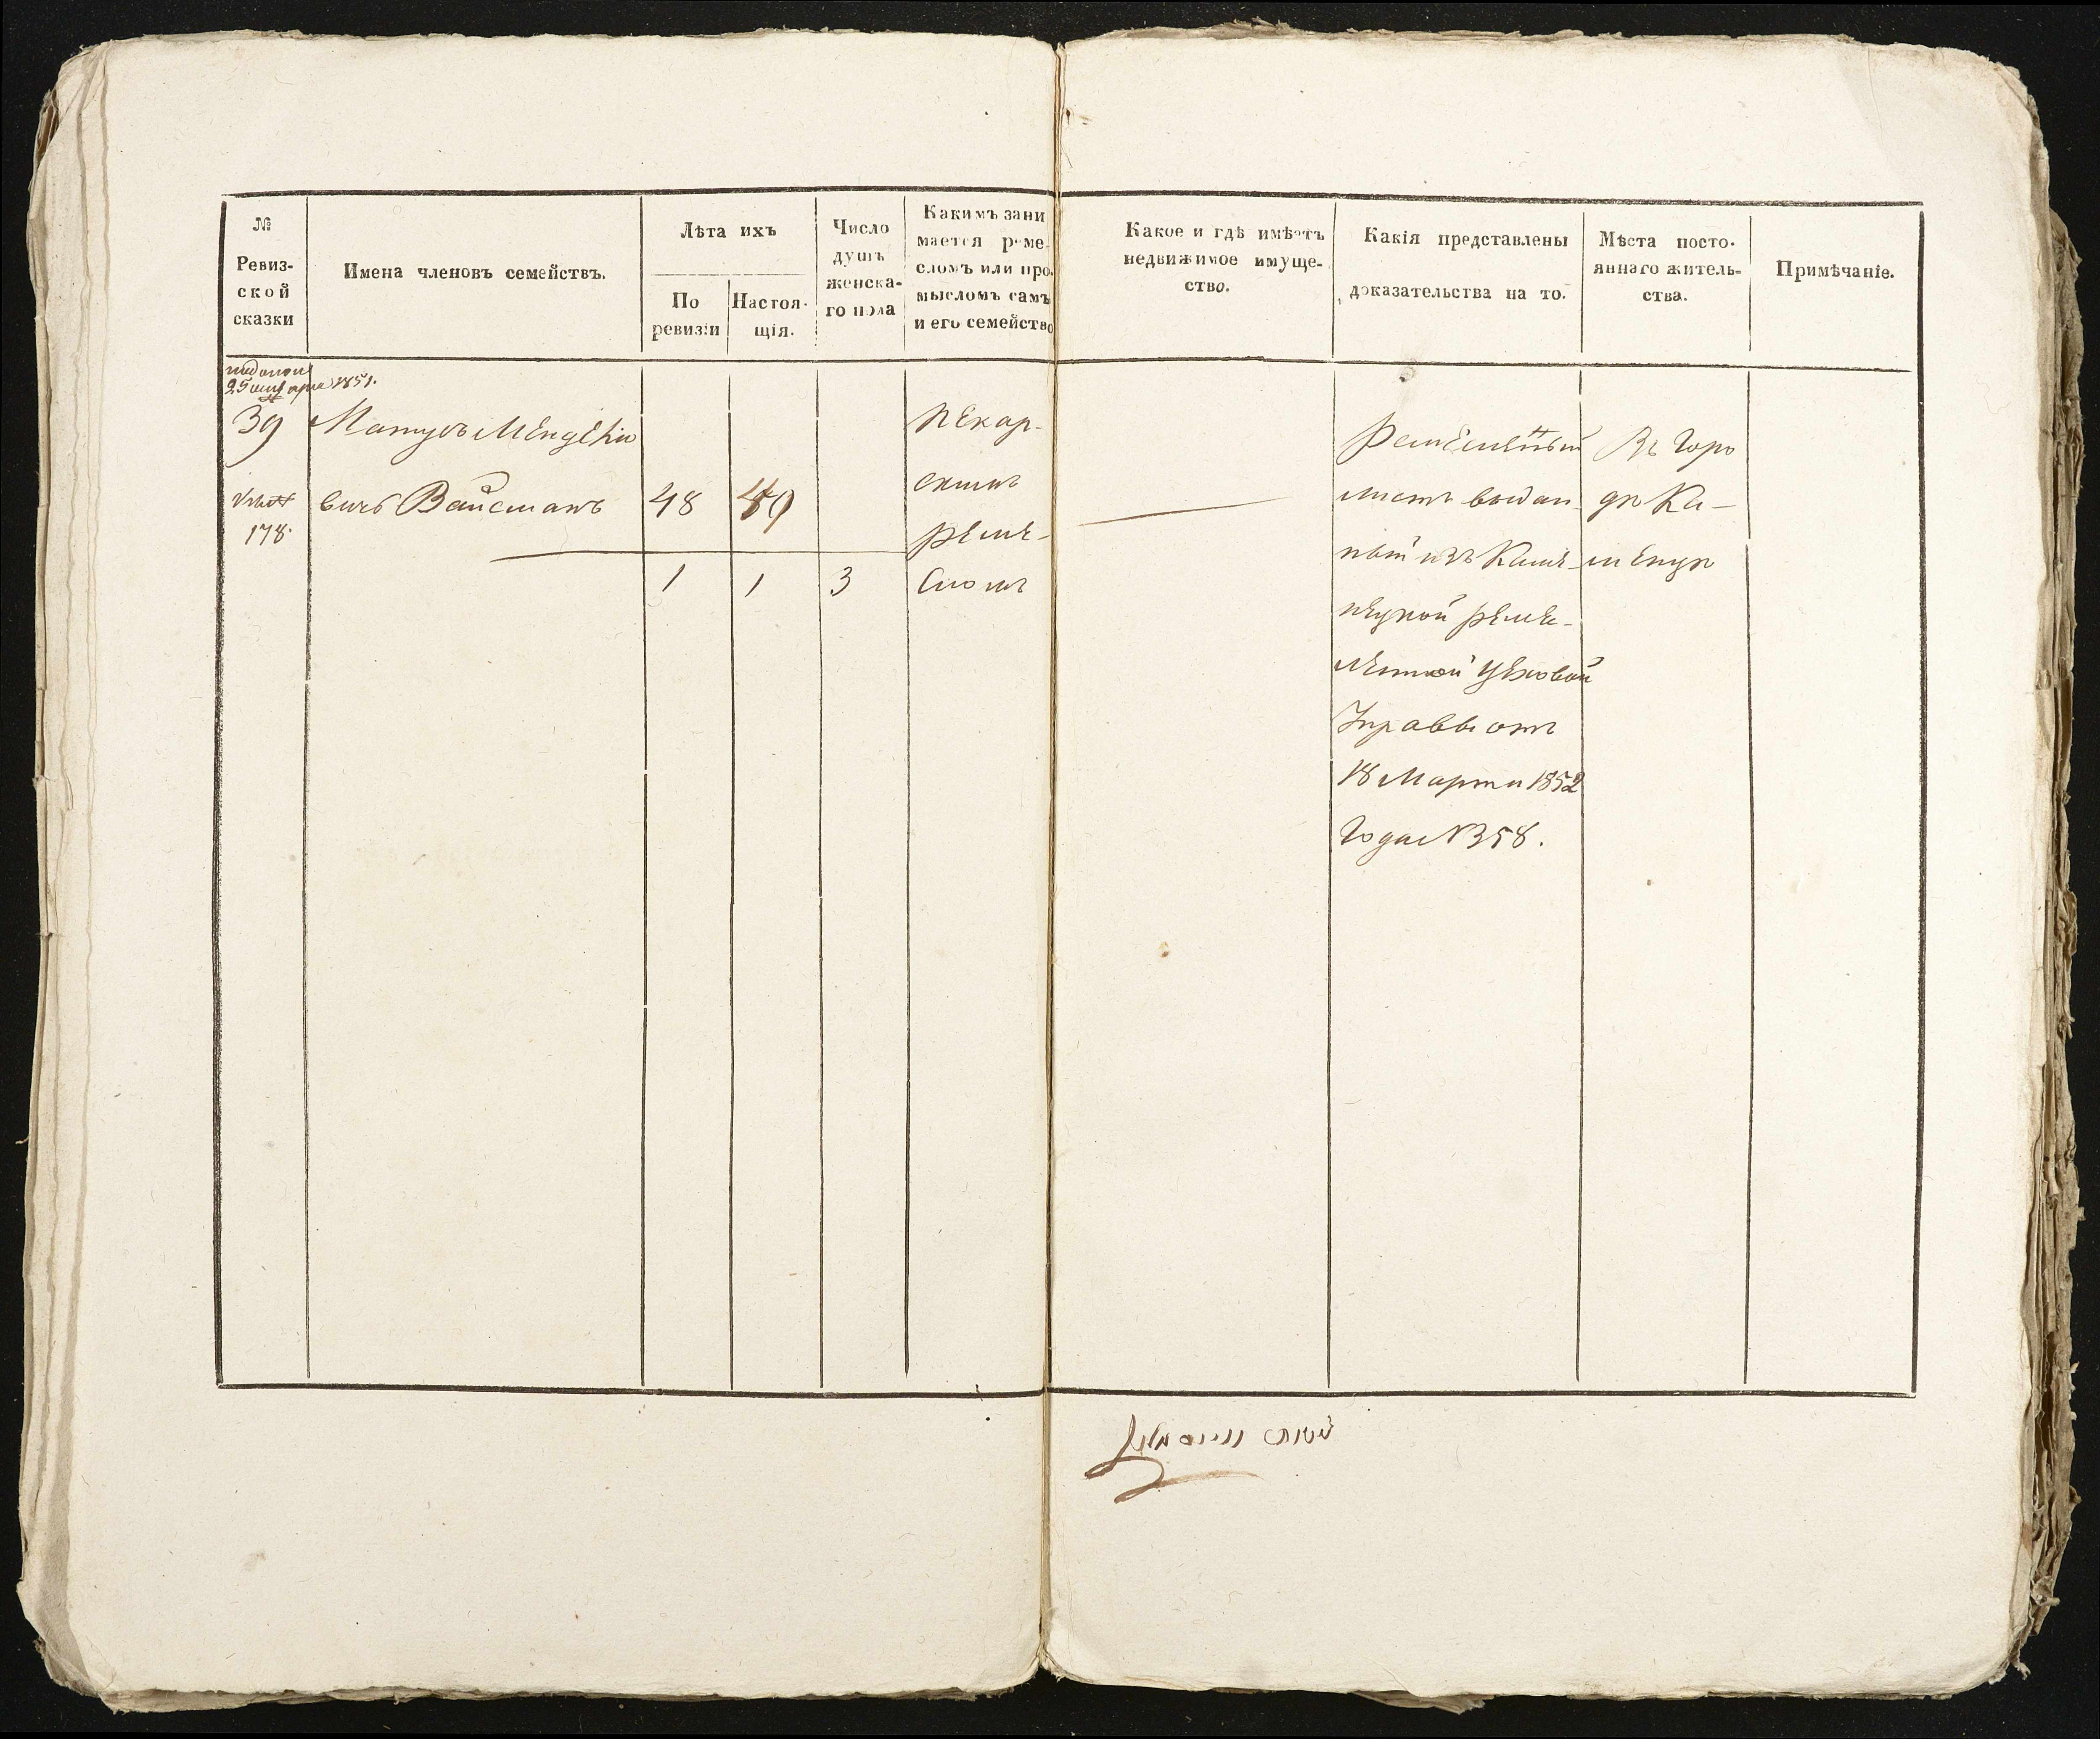 №
Ревиз-
ской
сказки
Имена членовъ семействъ.
Лѣта ихъ
По
ревизіи
Настоя-
щія.
Число
душъ
женска-
го пола
Какимъ зани
мается реме-
сломъ или про-
мысломъ самъ
и его семейство
Какое и гдѣ имѣетъ
недвижимое имуще-
ство.
Какія представлены
доказательства на то.
Мѣста посто-
яннаго житель-
ства.
Примѣчаніе.
1851.
39
178.
вичъ Вайсманъ
48
49
1
1
3
Пекар-
скимъ
реме-
сломъ
Ремесленный
листъ выдан-
ный изъ Каме-
нецкой реме-
сленной Цеховой
Управы отъ
18 Марта 1852
Года N 358.
Въ Горо
дѣ Ка-
менцѣ